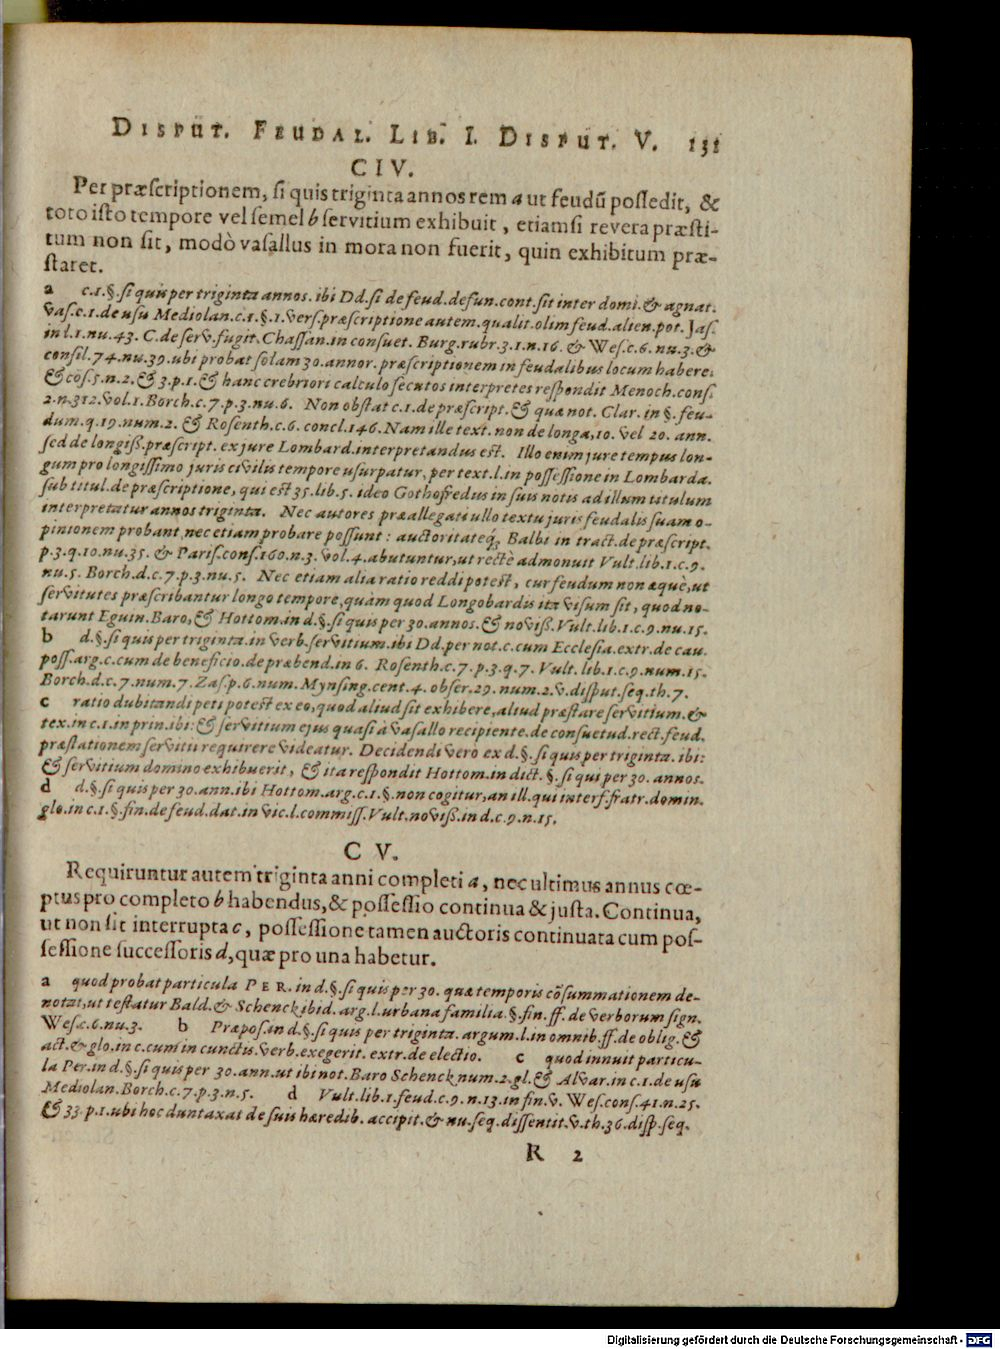 DISPUT. FEUDAL. LIB. I. DISPUT. V. 131
CIV.
Per præscriptionem, si quis triginta annos rem a ut feudū possedit, &
toto isto tempore vel semel b servitium exhibuit, etiamsi revera præsti-
tum non sit, modò vasallus in mora non fuerit, quin exhibitum præ-
staret.
a c.1.§.si quis per triginta annos. ibi Dd. si de feud. defun. cont. sit inter domi. & agnat.
Vas. c.1. de usu Mediolan. c.1. §.1. vers. præscriptione autem. qualit. olim feud. alien. pot. Jas.
in l.1. nu. 43. C. de serv. fugit. Chassan. in consuet. Burg. rubr. 3. 1. n. 16. & Wes. c. 6. nu. 3. &
consil. 74. nu. 39. ubi probat solam 30. annor. præscriptionem in feudalibus locum habere.
& cōs. 5. n. 2. & 3. p. 1. & hanc crebriori calculo secutos interpretes respondit Menoch. cons.
2. n. 312. vol. 1. Borch. c. 7. p. 3. nu. 6. Non obstat c. 1. de præscript. & quæ not. Clar. in §. feu-
dum. q. 19. num. 2. & Rosenth. c. 6. concl. 146. Nam ille text. non de longa, 10. vel 20. ann.
sed de longiss. præscript. ex jure Lombard. interpretandus est. Illo enim jure tempus lon-
gum pro longissimo juris civilis tempore usurpatur, per text. l. in possessione in Lombarda.
sub titul. de præscriptione, qui est 35. lib. 5. ideo Gothofredus in suis notis ad illum titulum
interpretatur annos triginta. Nec autores præallegati ullo textu juris feudalis suam o-
pinionem probant, nec etiam probare possunt: auctoritateq́; Balbi in tract. de præscript.
p. 3. q. 10. nu. 35. & Paris. cons. 160. n. 3. vol. 4. abutuntur, ut rectè admonuit Vult. lib. 1. c. 9.
nu. 5. Borch. d. c. 7. p. 3. nu. 5. Nec etiam alia ratio reddi potest, cur feudum non æquè, ut
servitutes præscribantur longo tempore, quàm quod Longobardis ita visum sit, quod no-
tarunt Eguin. Baro, & Hottom. in d. §. si quis per 30. annos. & noviss. Vult. lib. 1. c. 9. nu. 15.
b d. §. si quis per triginta. in verb. servitium. ibi Dd. per not. c. cum Ecclesia. extr. de cau.
poss. arg. c. cum de beneficio. de præbend. in 6. Rosenth. c. 7. p. 3. q. 7. Vult. lib. 1. c. 9. num. 15.
Borch. d. c. 7. num. 7. Zas. p. 6. num. Mynsing. cent. 4. obser. 29. num. 2. v. disput. seq. th. 7.
c ratio dubitandi peti potest ex eo, quod aliud sit exhibere, aliud præstare servitium. &
tex. in c. 1. in prin. ibi: & servitium ejus quasi à vasallo recipiente. de consuetud. rect. feud.
præstationem servitii requirere videatur. Decidendi vero ex d. §. si quis per triginta. ibi:
& servitium domino exhibuerit, & ita respondit Hottom. in dict. §. si qui per 30. annos.
d d. §. si quis per 30. ann. ibi Hottom. arg. c. 1. §. non cogitur, an ill. qui interf. fratr. domin.
glo. in c. 1. §. fin. de feud. dat. in vic. l. commiss. Vult. noviss. in d. c. 9. n. 15.
CV.
Requiruntur autem triginta anni completi a, nec ultimus annus cœ-
ptus pro completo b habendus, & possessio continua & justa. Continua,
ut non sit interrupta c, possessione tamen auctoris continuata cum pos-
sessione successoris d, quæ pro una habetur.
a quod probat particula PER. in d. §. si quis per 30. quæ temporis cōsummationem de-
notat, ut testatur Bald. & Schenck ibid. arg. l. urbana familia. §. fin. ff. de verborum sign.
Wes. c. 6. nu. 3. b Præpos. in d. §. si quis per triginta. argum. l. in omnib. ff. de oblig. &
act. & glo. in c. cum in cunctis. verb. exegerit. extr. de electio. c quod innuit particu-
la Per. in d. §. si quis per 30. ann. ut ibi not. Baro Schenck num. 2. gl. & Alvar. in c. 1. de usu
Mediolan. Borch. c. 7. p. 3. n. 5. d Vult. lib. 1. feud. c. 9. n. 13. in fin. v. Wes. cons. 41. n. 25.
& 33. p. 1. ubi hoc duntaxat de suis hæredib. accipit. & nu. seq. dissentit. v. th. 36. disp. seq.
R 2
Digitalisierung gefördert durch die Deutsche Forschungsgemeinschaft - DFG